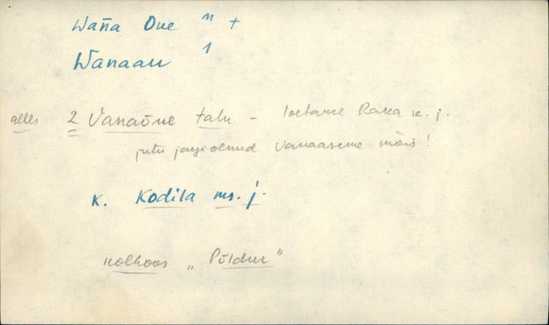 Waña Oue " +
Wanaau 1
alles 2 Vanaõue talu - loetavse Raka k. j.
juttu järgi olnud Vanaaseme mõis!
K. Kodila ms. j.
kolhoos „Põldur"